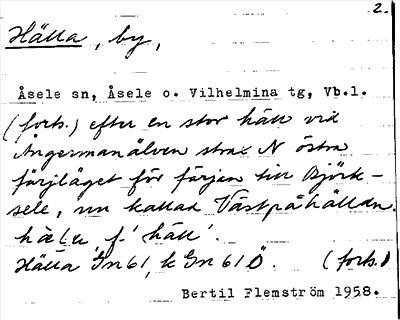 2.
Hälla, by,
Åsele sn, Åsele o. Vilhelmina tg, Vb.l.
(forts.) efter en stor häll vid
Ångermanälven strax N östra
färjläget för färjan till Björk-
sele, nu kallad Västpåhällan.
f. 'häll'.
Hälla Gn 61, k Gn 61 Ö. (forts.)
Bertil Flemström 1958.